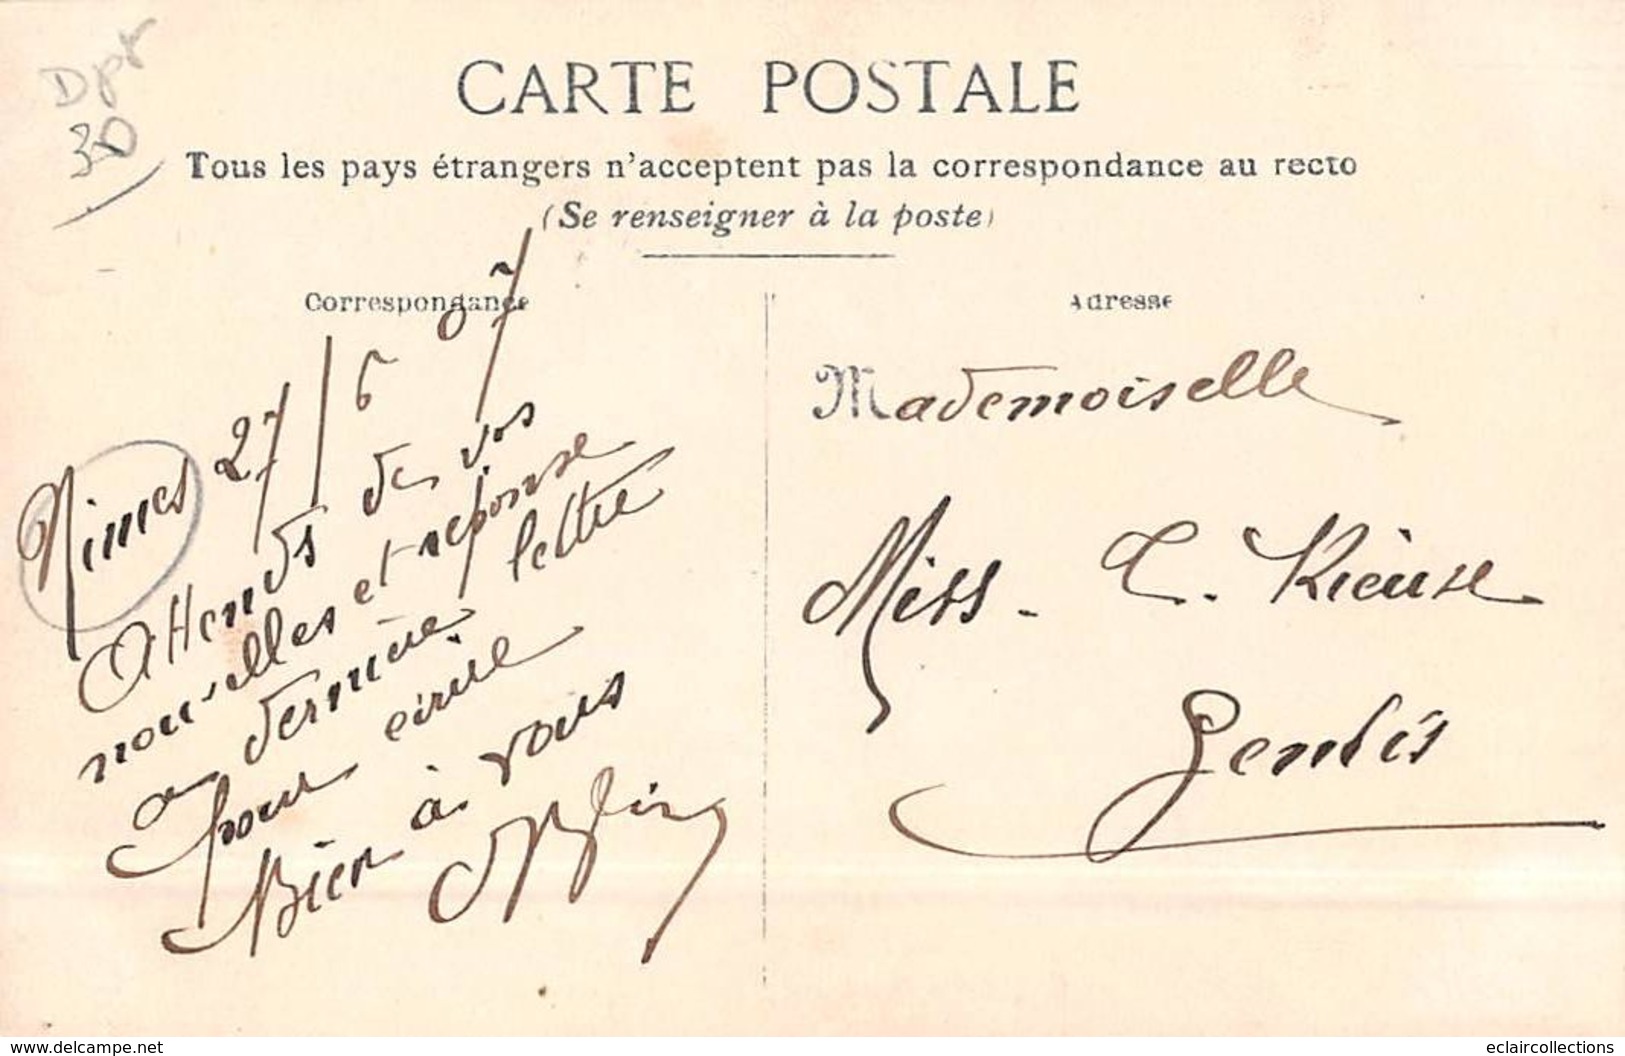 Dpt
30
CARTE POSTALE
Tous les pays étrangers n'acceptent pas la correspondance au recto
(Se renseigner à la poste)
Correspondance
Nimes 27/6 07
Attends de vos
nouvelles et réponse
a dernière lettre
pour écrire
Bien à vous
Adresse
Mademoiselle
Miss -
www.delcampe.net
eclaircollections